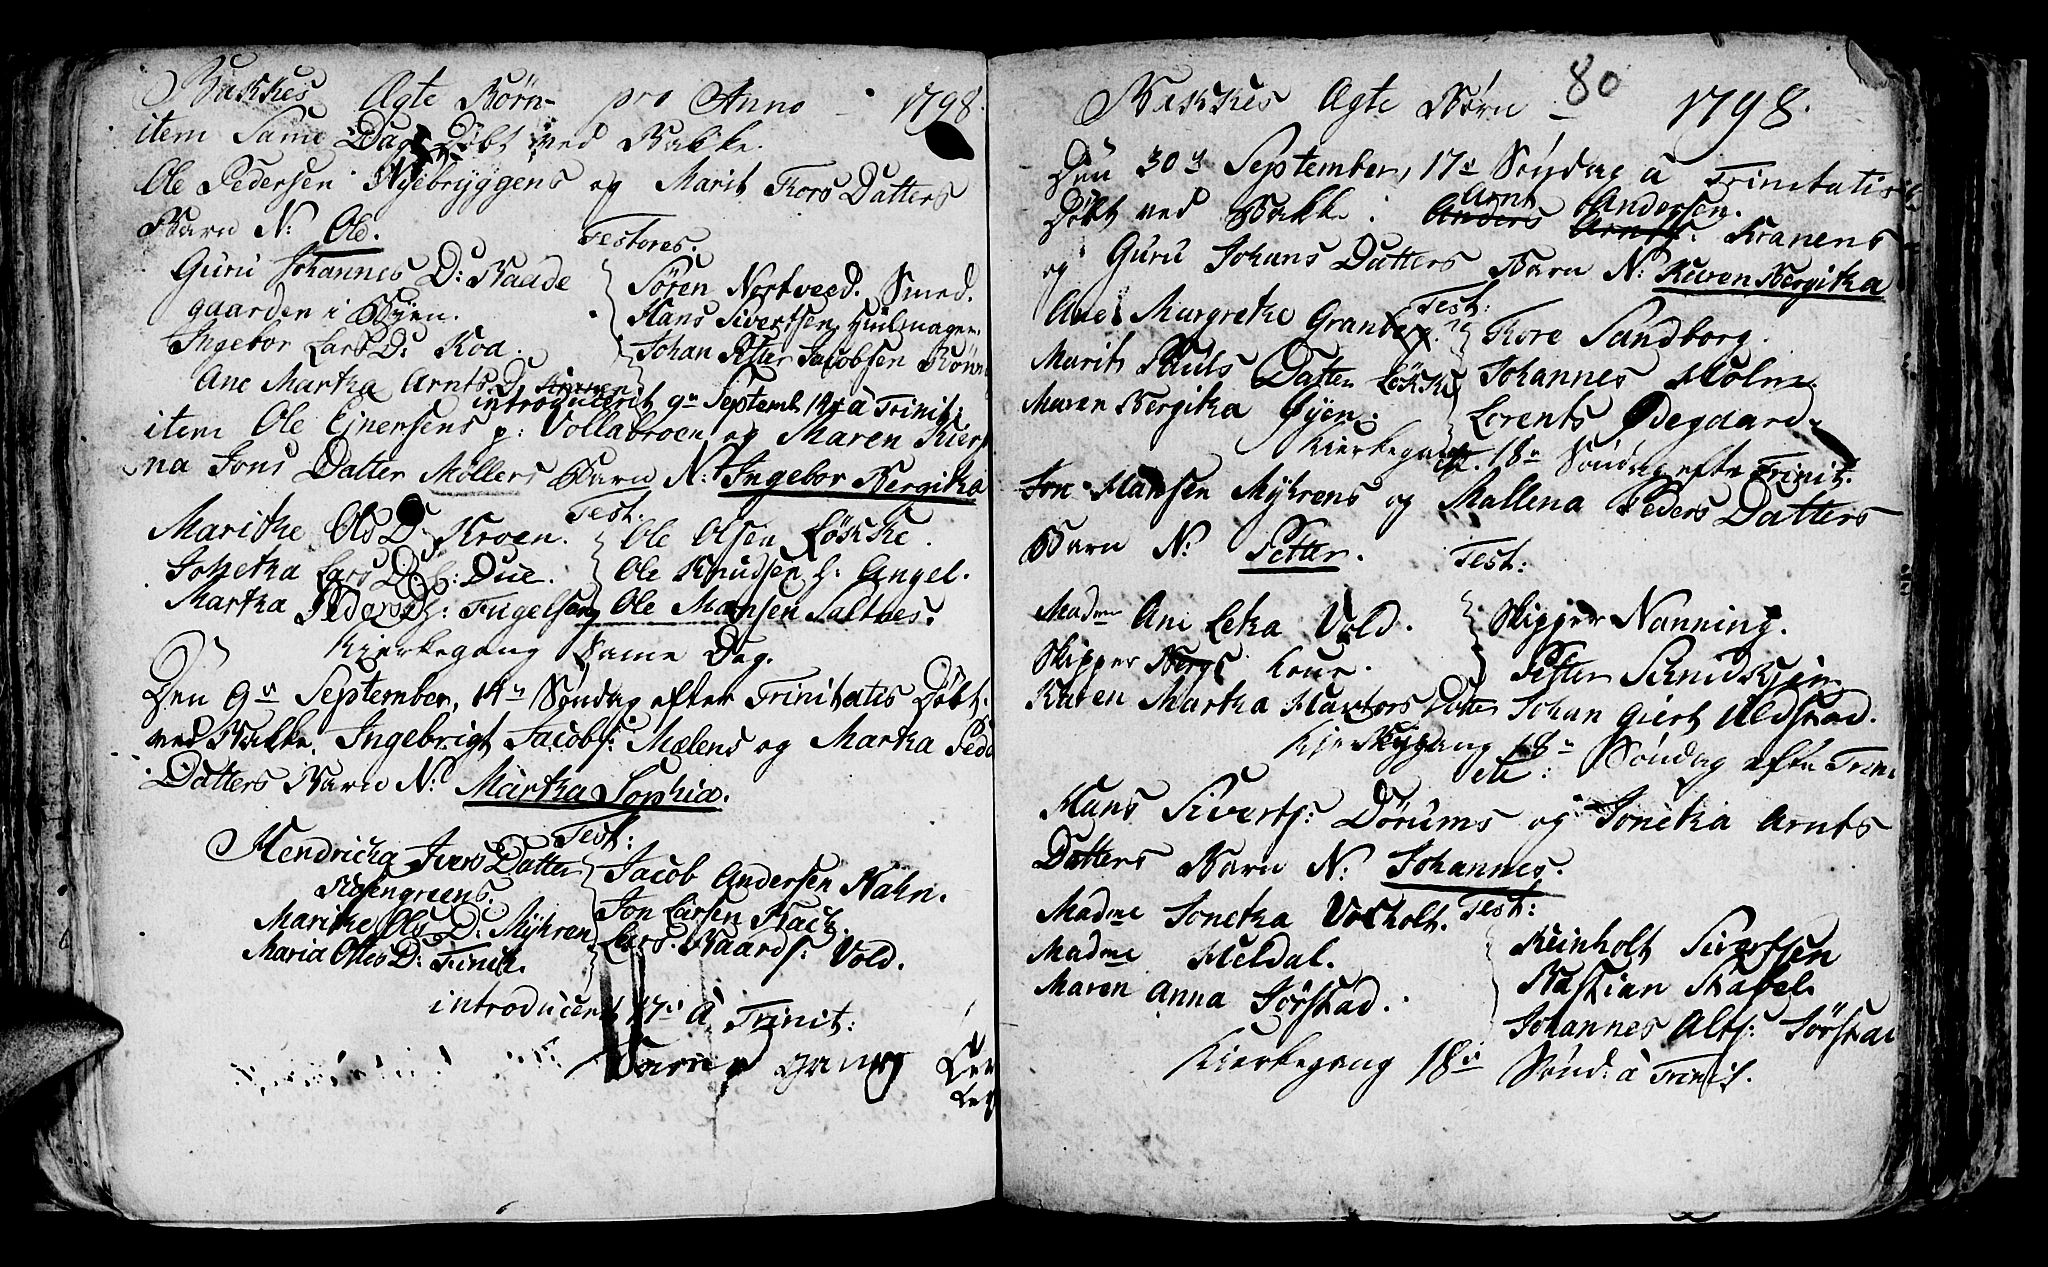 Bakkes Ægte Børn pro Anno - 1798.
item Same Dag Døbt ved Bakke.
Ole Pedersen Nyebryggens og Marit Thors Datters
Barn N: Ole.
Testores.
Guru Johannes D: Baade
gaarden i Byen.
Ingebor Lars D: Roa.
Ane Martha Arnts D.
Søren Nortveed. Smed.
Hans Sivertsen Hiulmager
Johan Peter Jacobsen
introduceret 9de Septemb. 14 à Trinit:
item Ole Ejnersens p: Vollabroen og Maren Kier
na Jons Datter Møllers Barn N: Ingebor Bergitha
Test:
Marithe Ols D: Kroen.
Johetha Lars D: h: Due.
Martha Peders D: h: Fugelsang
Ole Olsen Løkke.
Ole Knudsen h: Angel.
Ole Hansen Saltnes.
Kierkegang Same Dag.
Den 9de September, 14de Søndag efter Trinitatis Døbt
ved Bakke. Ingebrigt Jacobs: Mælens og Martha Peds
Datters Barn N: Martha Sophia.
Test:
Hendricha Ivers Datter
Rosengreens.
Marithe Ols D: Myhren
Maria Ottes D:
Jacob Andersen Hahn.
Jon Larsen Bach.
Lars Baards: Vold.
introduceret 17de à Trinit:
80
Bakkes Ægte Børn - 1798.
Den 30de September, 17de Søndag à Trinitatis
Døbt ved Bakke: Arnt Andersen Kranens
og Guru Johans Datters Barn N: Karen Bergitha
Test:
Ane Margrethe Granberg.
Marit Pauls Datter Løkke
Maren Bergitha Øyen.
Thore Sandborg.
Johannes Holm.
Lorents Ødegaard.
Kierkegang 18de Søndag efter Trinit.
Jon Hansen Myhrens og Mallena Peders Datters
Barn N: Petter. Test:
Madme Ane Letha Vold.
Skipper Bergs Kone.
Karen Martha Havtors Datter
Skipper Nanning.
Petter Schmidt
Johan Giert Uldstad.
Kierkegang 18de Søndag efter Trini
Hans Siverts: Dørums og Jonetha Arnts
Datters Barn N: Johannes.
Test:
Madme Jonetha Voxholt.
Madme Heldal.
Maren Anna Sørstad.
Reinholt Sivertsen
Bastian Stabel.
Johannes Alts: Sørstad
Kierkegang 18de Sønd: à Trinit.